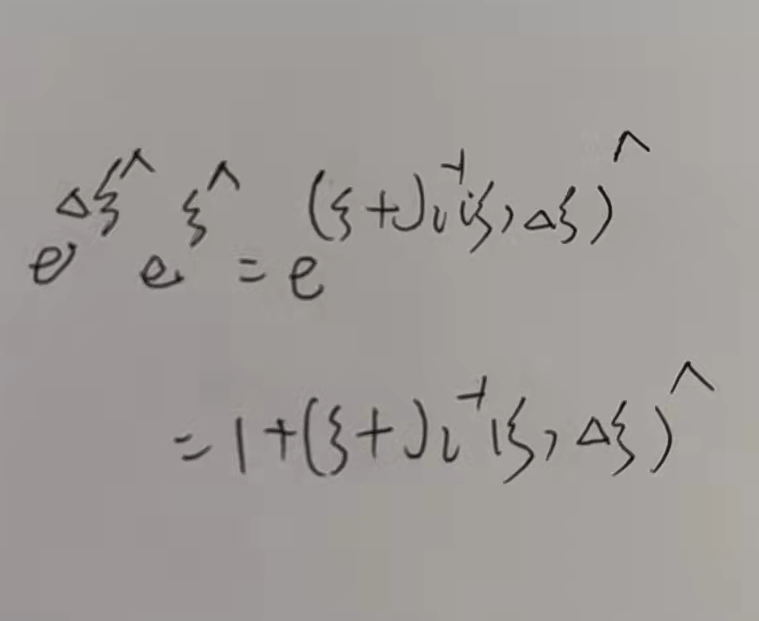 e^{Δξ^∧} e^{ξ^∧} = e^{(ξ+J_l^{-1}(ξ)Δξ)^∧}
= 1+(ξ+J_l^{-1}(ξ)Δξ)^∧